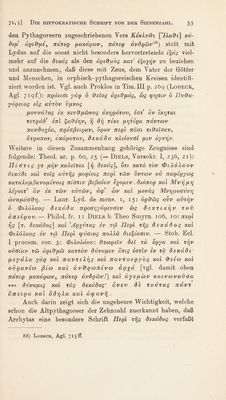 71, 5] DIE HIPPOKRATISCHE SCHRIFT VON DER SIEBENZAHL. 55
den Pythagoreern zugeschriebenen Vers Κέκλυθι [Ἵλαθι] κύ-
διμ' ἀριθμέ, πάτερ μακάρων, πάτερ ἀνδρῶν⁸⁸) statt mit
Lydus auf die sonst nicht besonders hervortretende ἑξάς viel-
mehr auf die δεκάς als den ἀριθμὸς κατ' ἐξοχήν zu beziehen
und anzunehmen, daß diese mit Zeus, dem Vater der Götter
und Menschen, in orphisch-pythagoreischen Kreisen identifi-
ziert worden ist. Vgl. auch Proklos in Tim. III p. 269 (LOBECK,
Agl. 715 f.): πρόεισι γὰρ ὁ θεῖος ἀριθμός, ὥς φησιν ὁ Πυθα-
γόρειος εἰς αὐτὸν ὕμνος
μουνάδος ἐκ κευθμῶνος ἀκηράτου, ἔστ' ἂν ἵκηται
τετράδ' ἐπὶ ζαθέην, ἣ δὴ τέκε μητέρα πάντων
πανδοχέα, πρέσβειραν, ὅρον περὶ πᾶσι τιθεῖσαν,
ἄτροπον, ἀκάματον, δεκάδα κλείουσί μιν ἁγνήν.
Weitere in diesen Zusammenhang gehörige Zeugnisse sind
folgende: Theol. ar. p. 60, 25 (= DIELS, Vorsokr. I,
Πίστις γε μὴν καλεῖται [ἡ δεκάς], ὅτι κατὰ τὸν Φιλόλαον
δεκάδι καὶ τοῖς αὐτῆς μορίοις περὶ τῶν ὄντων οὐ παρέργως
καταλαμβανομένοις πίστιν βεβαίαν ἔχομεν. διόπερ καὶ Μνήμη
λέγοιτ' ἂν ἐκ τῶν αὐτῶν, ἀφ' ὧν καὶ μονὰς Μνημοσύνη
ὠνομάσθη. — Laur. Lyd. de mens. 1, 15: ὀρθῶς οὖν αὐτὴν
ὁ Φιλόλαος δεκάδα προσηγόρευσεν ὡς δεκτικὴν τοῦ
ἀπείρου. — Philol. fr. 11 DIELS b. Theo Smyrn. 106, 10: περὶ
ἧς [τ. δεκάδος] καὶ Ἀρχύτας ἐν τῷ Περὶ τῆς δεκάδος καὶ
Φιλόλαος ἐν τῷ Περὶ φύσιος πολλὰ διεξίασιν. — Stob. Ecl.
I prooem. cor. 3: Φιλολάου· θεωρεῖν δεῖ τὰ ἔργα καὶ τὴν
οὐσίαν τῶ ἀριθμῶ καττὰν δύναμιν ἅτις ἐστὶν ἐν τᾷ δεκάδι·
μεγάλα γὰρ καὶ παντελὴς καὶ παντοεργὸς καὶ θείω καὶ
οὐρανίω βίω καὶ ἀνθρωπίνω ἀρχὰ [vgl. damit oben
πάτερ μακάρων, πάτερ ἀνδρῶν!] καὶ ἁγεμὼν κοινωνοῦσα
*** δύναμις καὶ τᾶς δεκάδος· ἄνευ δὲ ταύτας πάντ'
ἄπειρα καὶ ἄδηλα καὶ ἀφανῆ.
Auch darin zeigt sich die ungeheure Wichtigkeit, welche
schon die Altpythagoreer der Zehnzahl zuerkannt haben, daß
Archytas eine besondere Schrift Περὶ τῆς δεκάδος verfaßt
88) LOBECK, Agl. 715 ff.